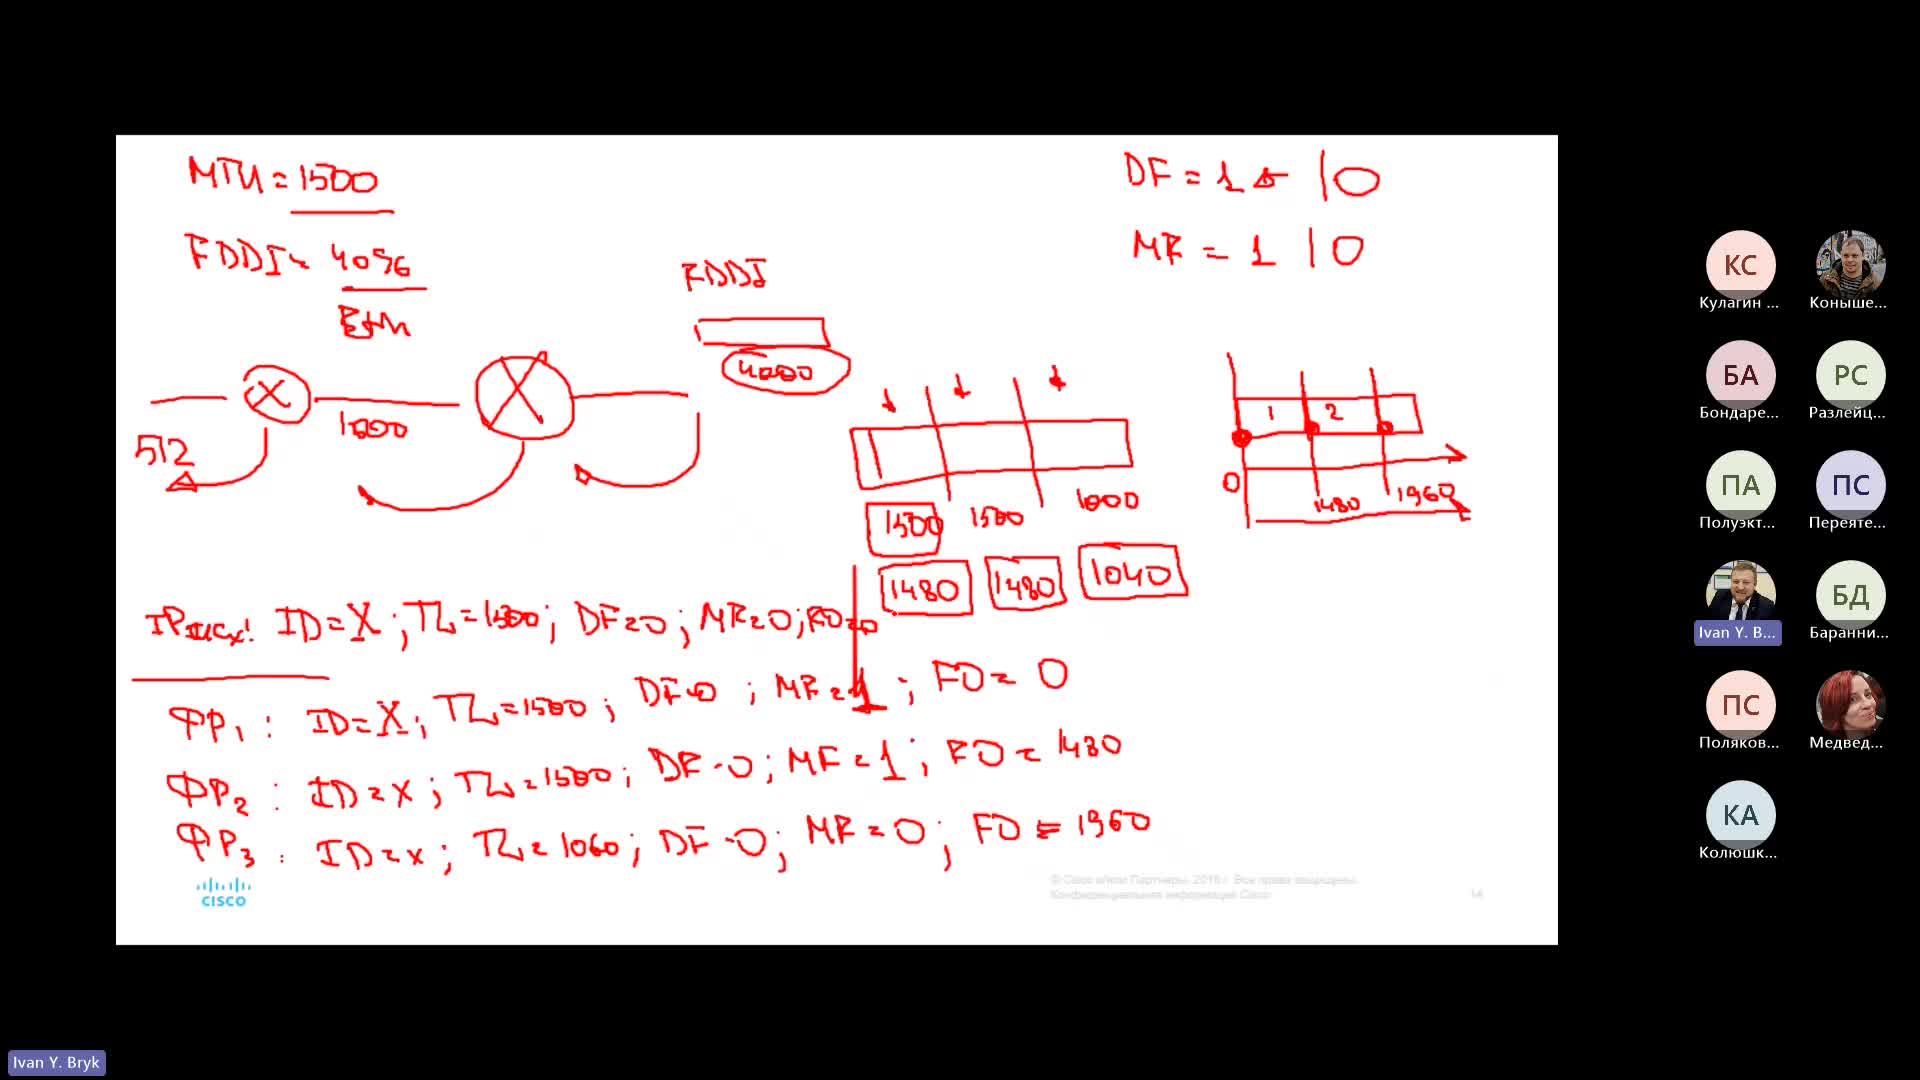 MTU = 1500
DF = 1 | 0
FDDI = 4096
MF = 1 | 0
FDDI
Eth
4000
1000
512
1 2
0
1480 1960
1500 1500 1000
1480 1480 1040
IP исх: ID = X; TL = 1500; DF = 0; MF = 0; FO = 0
ФР1: ID = X; TL = 1500; DF - 0; MF = 1; FO = 0
ФР2: ID = X; TL = 1500; DF - 0; MF = 1; FO = 1480
ФР3: ID = X; TL = 1060; DF - 0; MF = 0; FO = 1960
CISCO
© Cisco и/или Партнеры, 2016 г. Все права защищены.
Конфиденциальная информация Cisco
14
КС
Кулагин ...
Коныше...
БА
Бондаре...
РС
Разлейц...
ПА
Полуэкт...
ПС
Переяте...
Ivan Y. B...
БД
Баранни...
ПС
Поляков...
Медвед...
КА
Колюшк...
Ivan Y. Bryk